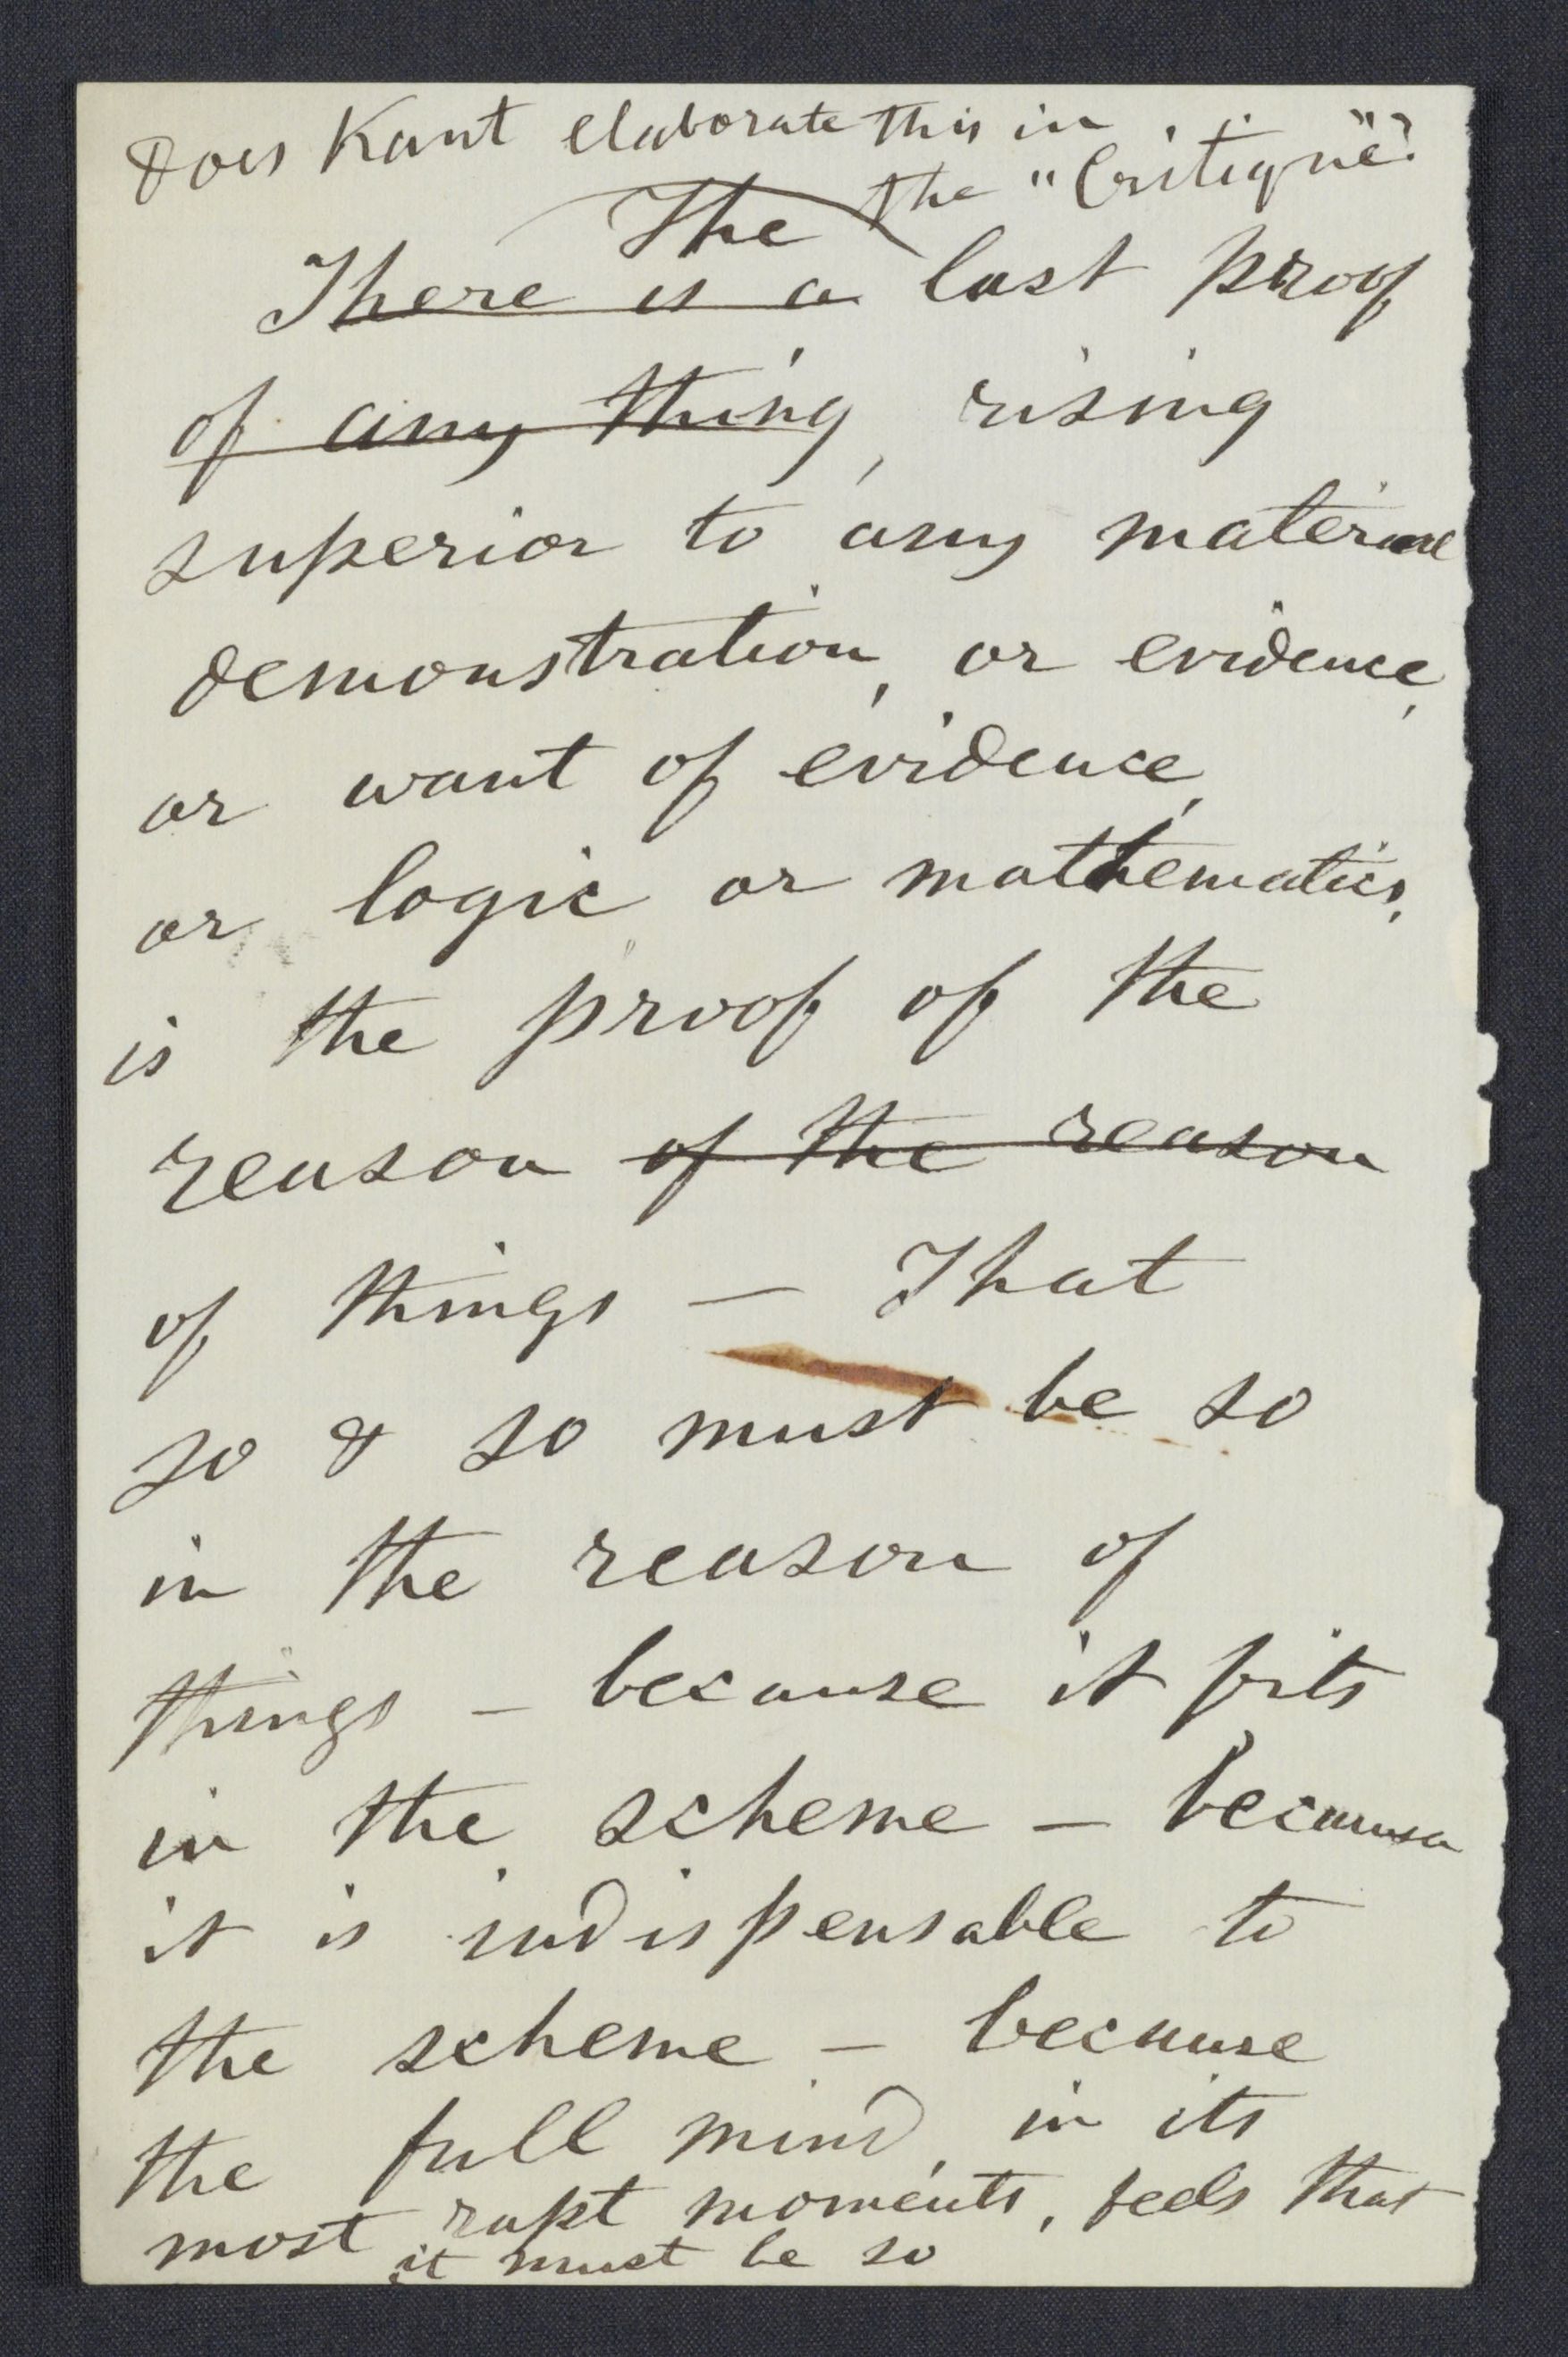 Does Kant elaborate this in
the "Critique"?
The
There is a last proof
of any thing, rising
superior to any material
demonstration, or evidence,
or want of evidence,
or logic or mathematics,
is the proof of the
reason of the reason
of things — That
so & so must be so
in the reason of
things — because it fits
in the scheme — because
it is indispensable to
the scheme — because
the full mind, in its
most rapt moments, feels that
it must be so